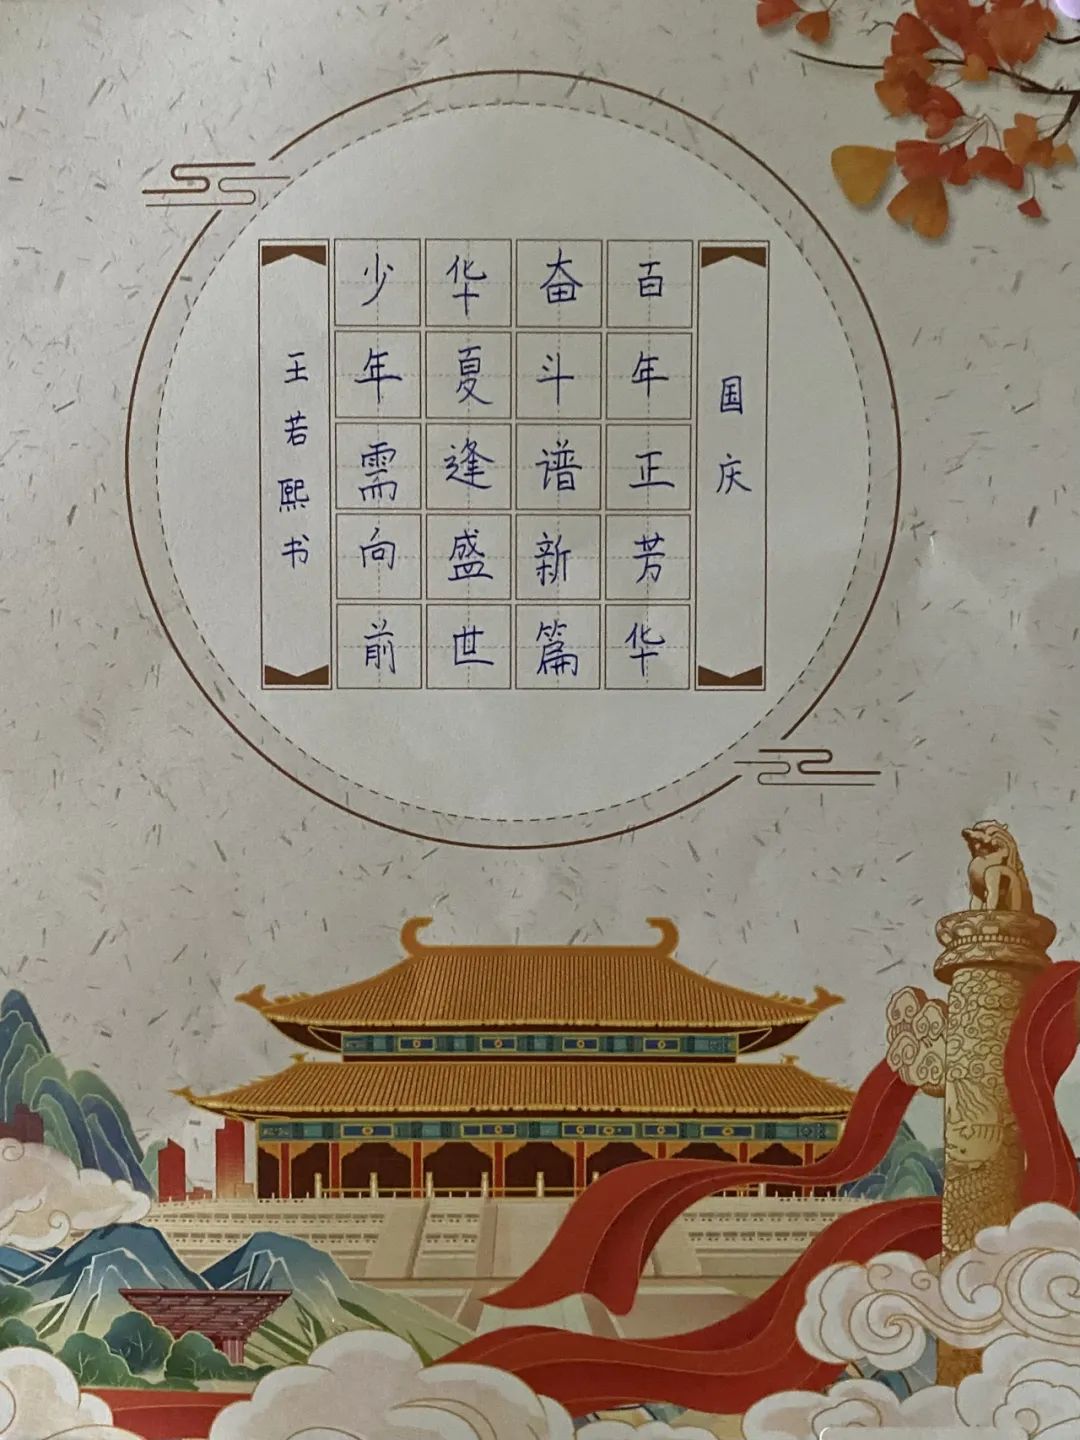 国庆
百年正芳华
奋斗谱新篇
华夏逢盛世
少年需向前
王若熙书